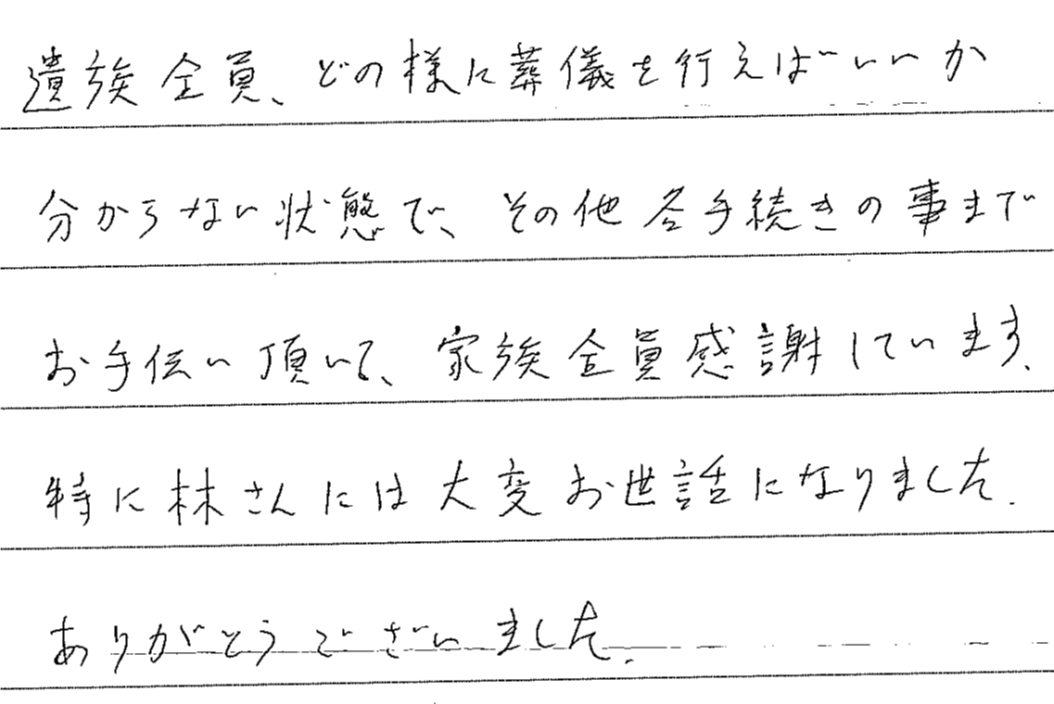 遺族全員、どの様に葬儀を行えばいいか
分からない状態で、その他各手続きの事まで
お手伝い頂いて、家族全員感謝しています。
特に林さんには大変お世話になりました。
ありがとうございました。